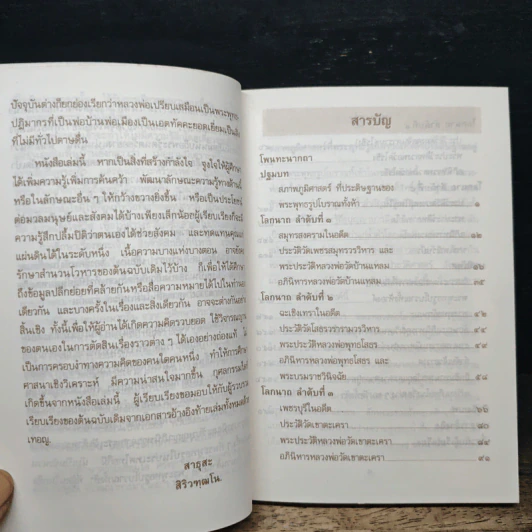 ปัจจุบันต่างก็ยกย่องเรียกว่าหลวงพ่อเปรียบเสมือนเป็นพระพุทธ
ปฏิมากรที่เป็นพ่อบ้านพ่อเมืองเป็นเอตทัคคะยอดเยี่ยมเป็น
ที่ไม่มีทั่วไปดาษดื่น
หนังสือเล่มนี้ หากเป็นสิ่งที่สร้างกำลังใจ จูงใจให้ผู้ศึกษา
ได้เพิ่มความรู้เพิ่มการค้นคว้า พัฒนาลักษณะความรู้ทางด้าน
หรือในลักษณะอื่น ๆ ให้กว้างขวางยิ่งขึ้น หรือเป็นประโยชน์
ต่อมวลมนุษย์และสังคมได้บ้างเพียงเล็กน้อยผู้เรียบเรียงก็จะมี
ความรู้สึกปลื้มปิติว่าตนเองได้ช่วยสังคม และทดแทนคุณของ
แผ่นดินได้ในระดับหนึ่ง เนื้อความบางแห่งบางตอน อาจยัง
รักษาสำนวนโวหารของต้นฉบับเดิมไว้บ้าง ก็เพื่อให้ได้ศึกษา
ถึงข้อมูลปลีกย่อยที่คล้ายกันหรือสื่อความหมายได้ไปในทำนอง
เดียวกัน และบางครั้งในเรื่องและสิ่งเดียวกัน อาจจะต่างกันอย่าง
สิ้นเชิง ทั้งนี้เพื่อให้ผู้อ่านได้เกิดความคิดรวบยอด ใช้วิจารณญาณ
ของตนเองในการตัดสินเรื่องราวต่าง ๆ ได้เองอย่างถ่องแท้
เป็นการครอบงำทางความคิดของคนใดคนหนึ่ง ทำให้การศึกษา
ศาสนาเชิงวิเคราะห์ มีความน่าสนใจมากขึ้น กุศลกรรมใด
เกิดขึ้นจากหนังสือเล่มนี้ ผู้เรียบเรียงขอมอบให้กับผู้รวบรวม
เรียบเรียงของต้นฉบับเดิมจากเอกสารอ้างอิงท้ายเล่มทั้งหมด
เทอญ.
สาธุสะ
สิริวฑฺฒโน.
สารบัญ
โพนทะนากอา
ปฐมบท
สภาพภูมิศาสตร์ ที่ประดิษฐานของ
พระพุทธรูปโบราณทั้งห้า ๑
โลกนาถ ลำดับที่ ๑
สมุทรสงครามในอดีต ๑๒
ประวัติวัดเพชรสมุทรวรวิหาร และ
พระประวัติหลวงพ่อวัดบ้านแหลม ๑๖
อภินิหารหลวงพ่อวัดบ้านแหลม ๓๕
โลกนาถ ลำดับที่ ๒
ฉะเชิงเทราในอดีต ๔๒
ประวัติวัดโสธรวรารามวรวิหาร ๔๔
พระประวัติหลวงพ่อพุทธโสธร ๔๙
อภินิหารหลวงพ่อพุทธโสธร และ
พระบรมราชวินิจฉัย ๕๘
โลกนาถ ลำดับที่ ๓
เพชรบุรีในอดีต ๖๖
ประวัติวัดเขาตะเครา ๗๓
พระประวัติหลวงพ่อวัดเขาตะเครา ๘๑
อภินิหารหลวงพ่อวัดเขาตะเครา ๙๑